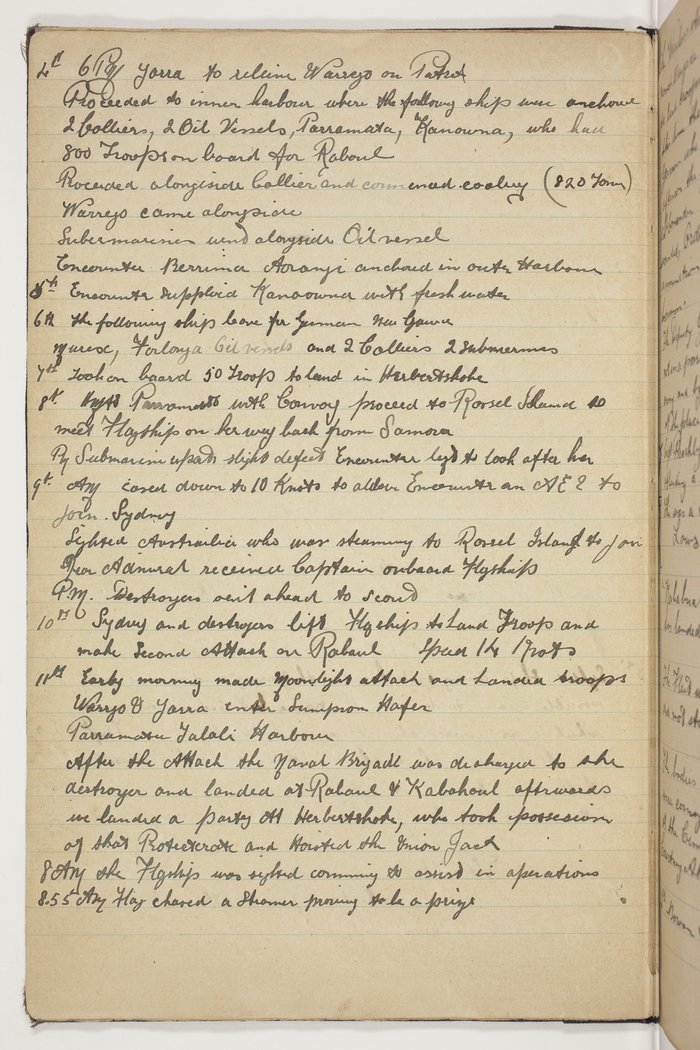 4th 6 PM Yarra to releive Warrego on Patrol
Proceeded to inner harbour where the following ship were anchored
2 Colliers, 2 Oil Vessels, Parramata, Kanowna, who had
800 Troops on board for Rabaul
Proceeded alongside Collier and commenced cooling (820 Tons)
Warrego came alongside
Submarines went alongside Oil vessel
Encounter Berrima Aorangi anchored in outer Harbour
5th Encounter supploid Kanowna with fresh water
6th The following ship leave for German New Guinea
Murex, Oil vessels and 2 Colliers 2 Submarines
7th Took on board 50 Troop to land in Herbertshohe
8th Parramatta with Convoy proceed to Rossel Island to
meet Flagship on her way back from Samoa
Submarine slight defect Encounter left to look after her
9th AM eased down to 10 Knots to allow Encounter an AE 2 to
join. Sydney
Sighted Austrailia who was steaming to Rossel Island to join
Rear Admiral received Captain onboard Flagship
P.M. Destroyers sent ahead to scout
10th Sydney and destroyers left Flagship to Land Troop and
make Second Attack on Rabaul Speed
11th Early morning made Moonlight attack and Landed troops
Warrego & Yarra enter Simpson Hafen
Parramatta Talali Harbour
After the Attack the Naval Brigade was discharged to the
destroyer and landed at Rabaul & Kabakaul afterwards
we landed a party at Herbertshohe, who took possesion
of that Protecterate and Hoisted the Union Jack
8 AM the Flagship was sighted comming to assist in operations
8.55 AM Flag chased a Steamer proving to be a prize